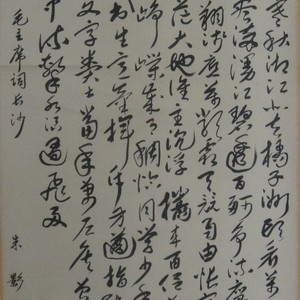 寒秋湘江北去橘子洲頭看萬
漫江碧透百舸争流
翔淺底萬類霜天競自由悵
茫大地誰主沉浮攜來百侣
崢嶸歲月稠恰同學少
書生意氣揮斥方遒指
文字糞土當年萬户侯曾
中流擊水浪遏飛舟
毛主席詞長沙
朱影